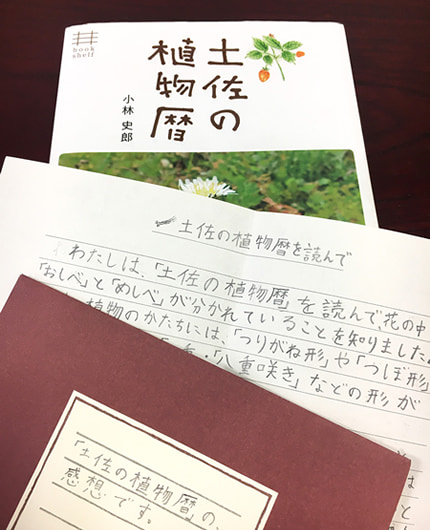 book
shelf
土佐の
植物暦
小林 史郎
土佐の植物暦を読んで
わたしは、「土佐の植物暦を読んで、花の中
「おしべ」と「めしべ」が分かれていることを知りました。
植物のかたちには、「つりがね形」や「つぼ形」
重・「八重咲き」などの形が
は
と
「土佐の植物暦」の、
感想です。